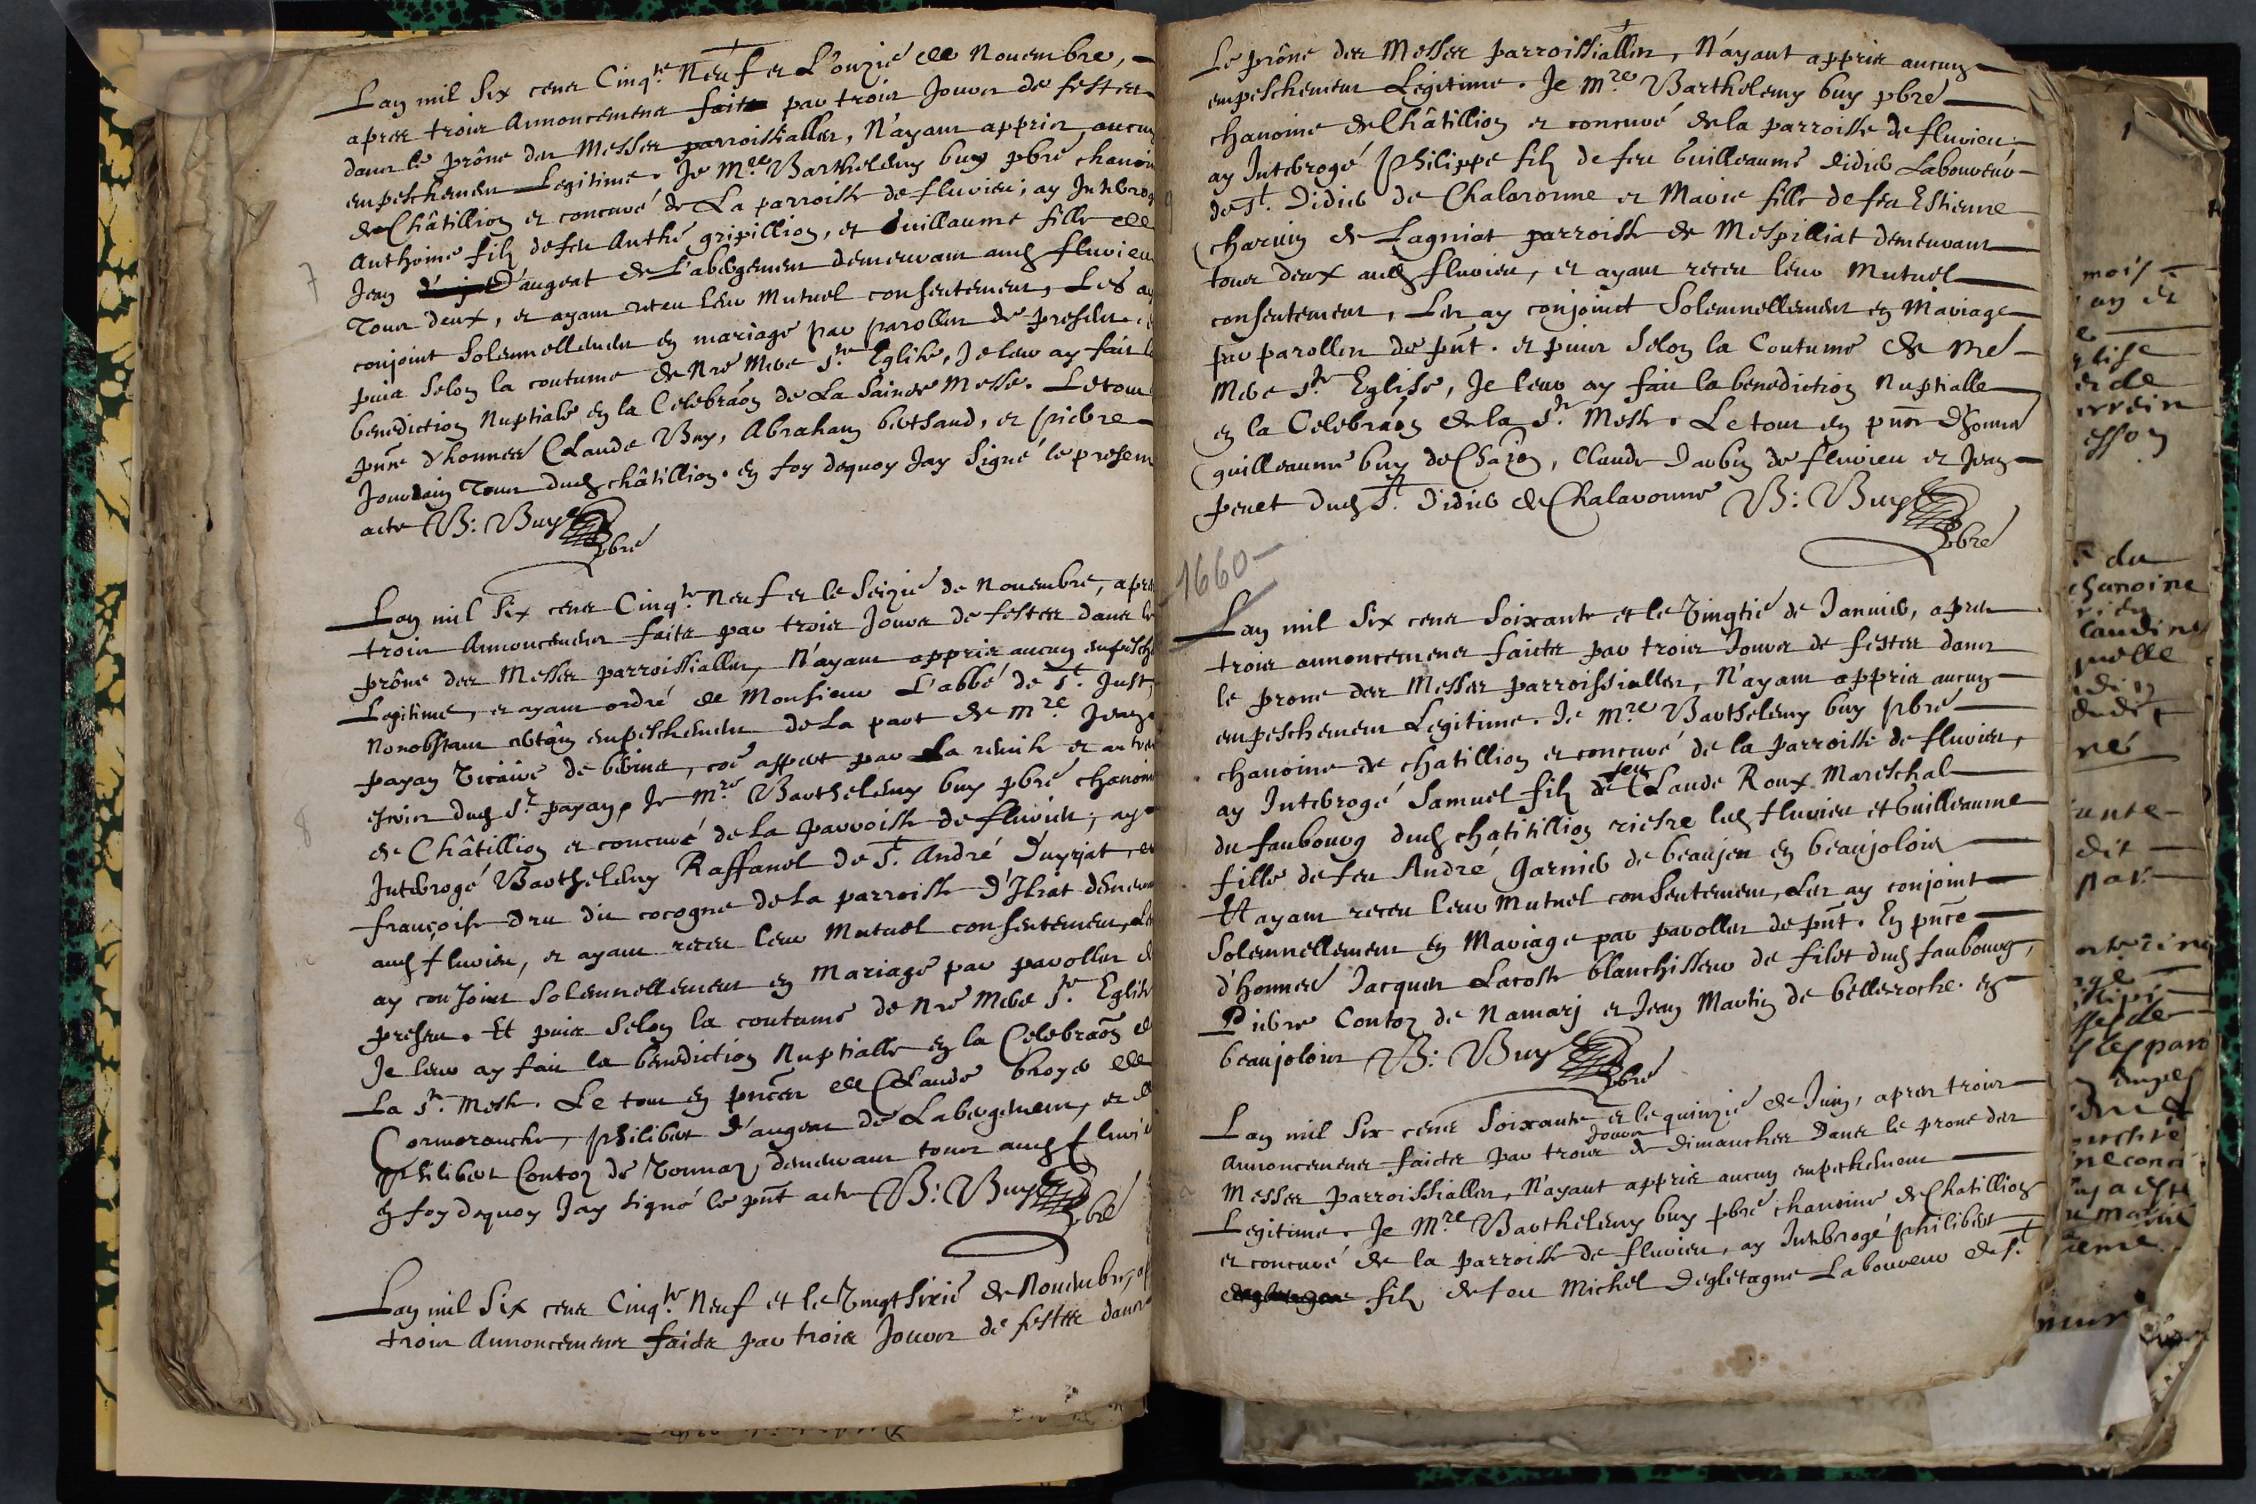 Lan mil Six cens Cinq.te Neuf et L'onzié de Nouembre,
apres trois Annoncemens faits par trois Jours de festes
dans le prône des Messes parroissialles, N'ayant appris aucun
empeschement Legitime. Je M.re Barthelemy buy pbre chanoin
de Châtillion et concuré de La parroisse de flurieu, ay Interrog
Anthoine filz de feu Anthe gripillion, et Guillaume fille de
Jean D'augeat de L'abergement demeurans aud flurieu
Tous deux, et ayant receu leur Mutuel consentement, Les ay
conjoint Solennellement en mariage par parolles de present. et
puis Selon la coutume de Nre Mere S.te Eglise, Je leur ay fait la
benediction Nuptiale en la Celebraon de La Sainte Messe. Le tout
pnce d'honnes Claude Buy, Abraham berthaud, et pierre
Jourdain Tous dud châtillion. en foy dequoy Jay Signé le present
acte B: Buy
pbre
7
Lan mil Six cens Cinq.te Neuf et le Seizié de Nouembre, apres
trois Annoncemens faits par trois Jours de festes dans le
prône des Messes parroissialles, N'ayant appris aucun empesche
Legitime, et ayant ordre de Monsieur L'abbé de S.t Just,
Nonobstant certain empeschement de La part de M.re Jean
payan Vicaire de , coe appert par La remise et
dud S.r payan, Je M.re Barthelemy buy pbre chanoin
8
de Châtillion et concuré de La parroisse de flurieu, ay
Interrogé Barthelemy Raffanel de S.t André D'uyriat, et
françoise Dru dit cocogne de La parroisse D'Illiat demeurans
aud flurieu, et ayant receu leur Mutuel consentement, les
ay conJoint Solennellement en Mariage par parolles de
present. Et puis Selon la coutume de Nre Mere S.te Eglise
Je leur ay fait la benediction Nuptialle en la Celebraon de
La S.te Messe. Le tout en pnces de Claude broyer de
Cormoranche, philibert D'augeat de Labergement, et de
philibert Conton de Tornas, demeurans tous aud fluri
en foy dequoy Jay signé le pnt acte B: Buy
pbre
Lan mil Six cens Cinq.te Neuf et le Vingt Sixié de Nouembre, ap
trois Annoncemens faits par trois Jours de festes dans
Le prône des Messes parroissialles, N'ayant appris aucun
empeschement Legitime. Je M.re Barthelemy buy pbre
chanoine de Châtillion et concuré de la parroisse de flurieu,
ay Interrogé philippe filz de feu Guilleaume Didier Laboureur
de S.t Didier de Chalaronne et Marie fille de feu Estienne
charuin de Lagniat parroisse de Mespilliat demeurans
tous deux aud flurieu, et ayant receu leur Mutuel
consentement, Les ay conjoinct Solennellement en Mariage
par parolles de pnt. et puis Selon la Coutume de Nre
Mere S.te Eglise, Je leur ay fait la benediction Nuptialle
en la Celebraon de la S.te Messe. Le tout en pnce D'honnes
guilleaume buy de , Claude Daubin de flurieu et Jean
penet dud S.t Didier de Chalaronne B: Buy
pbre
1660
Lan mil Six cens Soixante et le Vingtié de Januier, apres
trois annoncemens faicts par trois Jours de festes dans
le prone des Messes parroissialles, N'ayant appris aucun
empeschement Legitime. Je M.re Barthelemy buy pbre
chanoine de chatillion et concuré de la parroisse de flurieu,
ay Interrogé Samuel filz de feu Claude Roux Mareschal
du faubourg dud chatitillion riere led flurieu et Guilleaume
fille de feu André Garnier de beaujeu en beaujolois
Et ayant receu leur Mutuel consentement, Les ay conjoint
Solennellement en Mariage par parolles de pnt. En pnce
d'honnes Jacques Lacoste blanchisseur de filet dud faubourg,
Pierre Conton de Namary et Jean Martin de belleroche en
beaujolois B: Buy
pbre
Lan mil Six cens Soixante et le quinzié de Juin, apres trois
Annoncemens faicts par trois Jours de dimanches Dans le prone des
Messes parroissialles, N'ayant appris aucun empechement
Legitime. Je M.re Barthelemy buy pbre chanoine de Chatillion
et concuré de la parroisse de flurieu, ay Interrogé philibert
filz de feu Michel Degletagne Laboureur de S.t